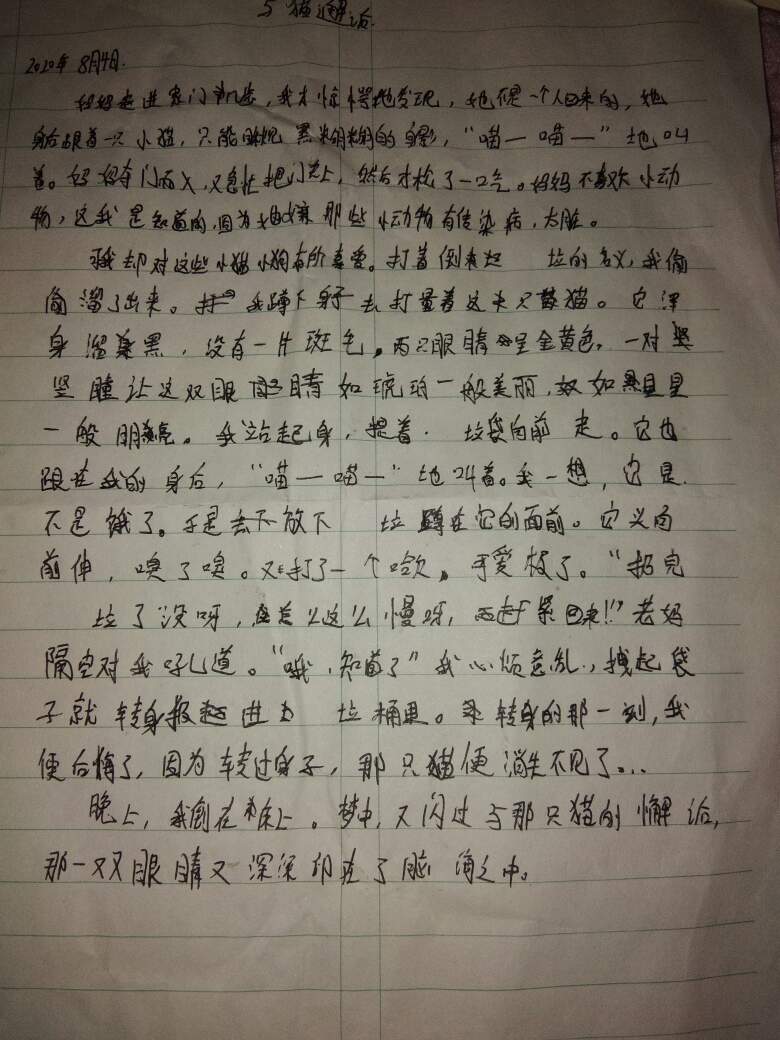 与猫邂逅
2020年8月4日.
妈妈走进家门，我才惊愕地发现，她不是一个人回来的，她
身后跟着一只小猫，只能瞧见黑糊糊的身影，“喵—喵—”地叫
着。妈妈夺门而入，又急忙把门关上，然后才松了一口气。妈妈不喜欢小动
物，这我是知道的，因为她嫌那些小动物有传染病，太脏。
我却对这些小猫小狗有所喜爱。打着倒 垃的名义，我偷
偷溜了出来。我蹲下身子去打量着这只猫。它浑
身溜黑，没有一片斑毛。两只眼睛呈金黄色，一对
竖瞳让这双眼睛如琥珀一般美丽，如黑星
一般明亮。我站起身，提着 垃袋向前走。它也
跟在我的身后，“喵—喵—”地叫着。我一想，它是
不是饿了。于是放下 垃蹲在它的面前。它又向
前伸，嗅了嗅。又打了一个哈欠。可爱极了。“扔完
垃了没呀，怎么这么慢呀，赶紧回来!!”老妈
隔空对我吼道。“哦，知道了”我心烦意乱，拽起袋
子就转身扔进 垃桶里。转身的那一刻，我
便后悔了，因为转过身子，那只猫便消失不见了...
晚上，我倒在床上。梦中，又闪过与那只猫的懈逅，
那一双眼睛又深深印在了脑海之中。